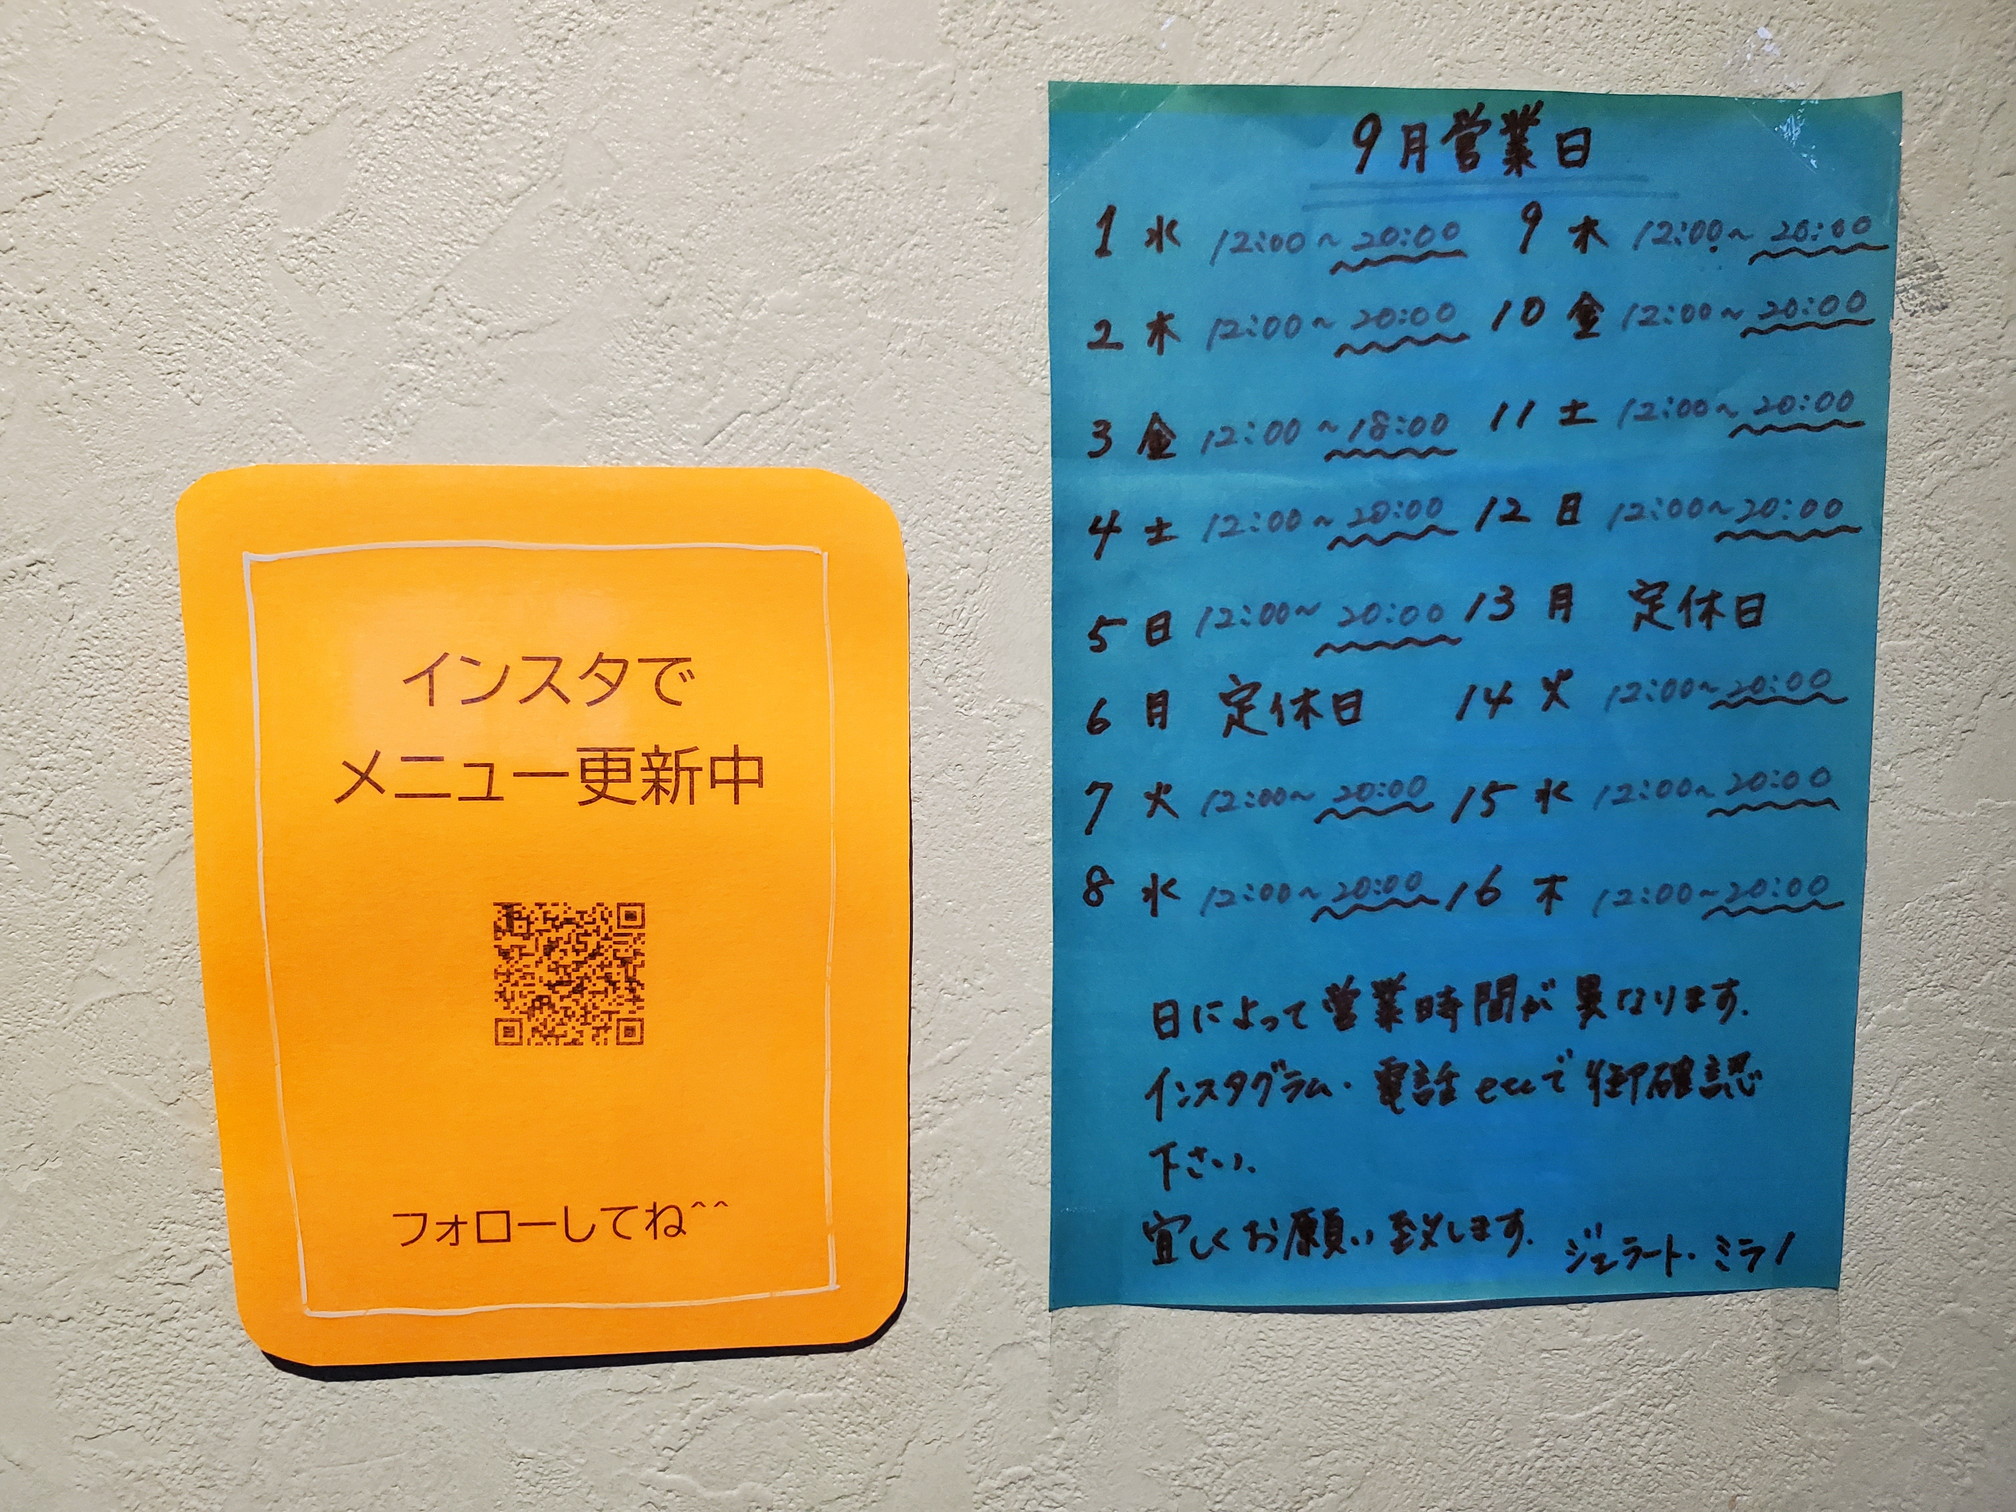 インスタで
メニュー更新中
フォローしてね^^
9月営業日
1 水 12:00~20:00
2 木 12:00~20:00
3 金 12:00~18:00
4 土 12:00~20:00
5 日 12:00~20:00
6 月 定休日
7 火 12:00~20:00
8 水 12:00~20:00
9 木 12:00~20:00
10 金 12:00~20:00
11 土 12:00~20:00
12 日 12:00~20:00
13 月 定休日
14 火 12:00~20:00
15 水 12:00~20:00
16 木 12:00~20:00
日によって営業時間が異なります.
インスタグラム・電話etcで御確認
下さい.
宜しくお願い致します.
ジェラート・ミラノ